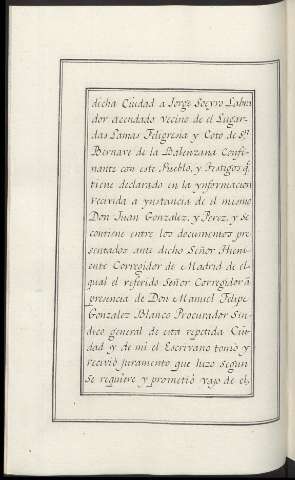 dicha Ciudad a Jorge Soeyro Labra
dor acendado vecino de el Lugar
das Lamas Feligresia y Coto de Sn.
Bernave de la Balenzana Confi-
nante con este Pueblo, y Testigos q.
tiene declarado en la ynformacion
recivida a ynstancia de el mismo
Don Juan Gonzalez, y Perez, y se
contiene entre los documentos pre
sentados ante dicho Señor Theni-
ente Corregidor de Madrid de el
qual el referido Señor Corregidor á
presencia de Don Manuel Felipe
Gonzalez Blanco Procurador Sin
dico general de esta repetida Ciu
dad y de mi el Escrivano tomó y
recivió juramento que hizo segun
se requiere y prometió vajo de el,